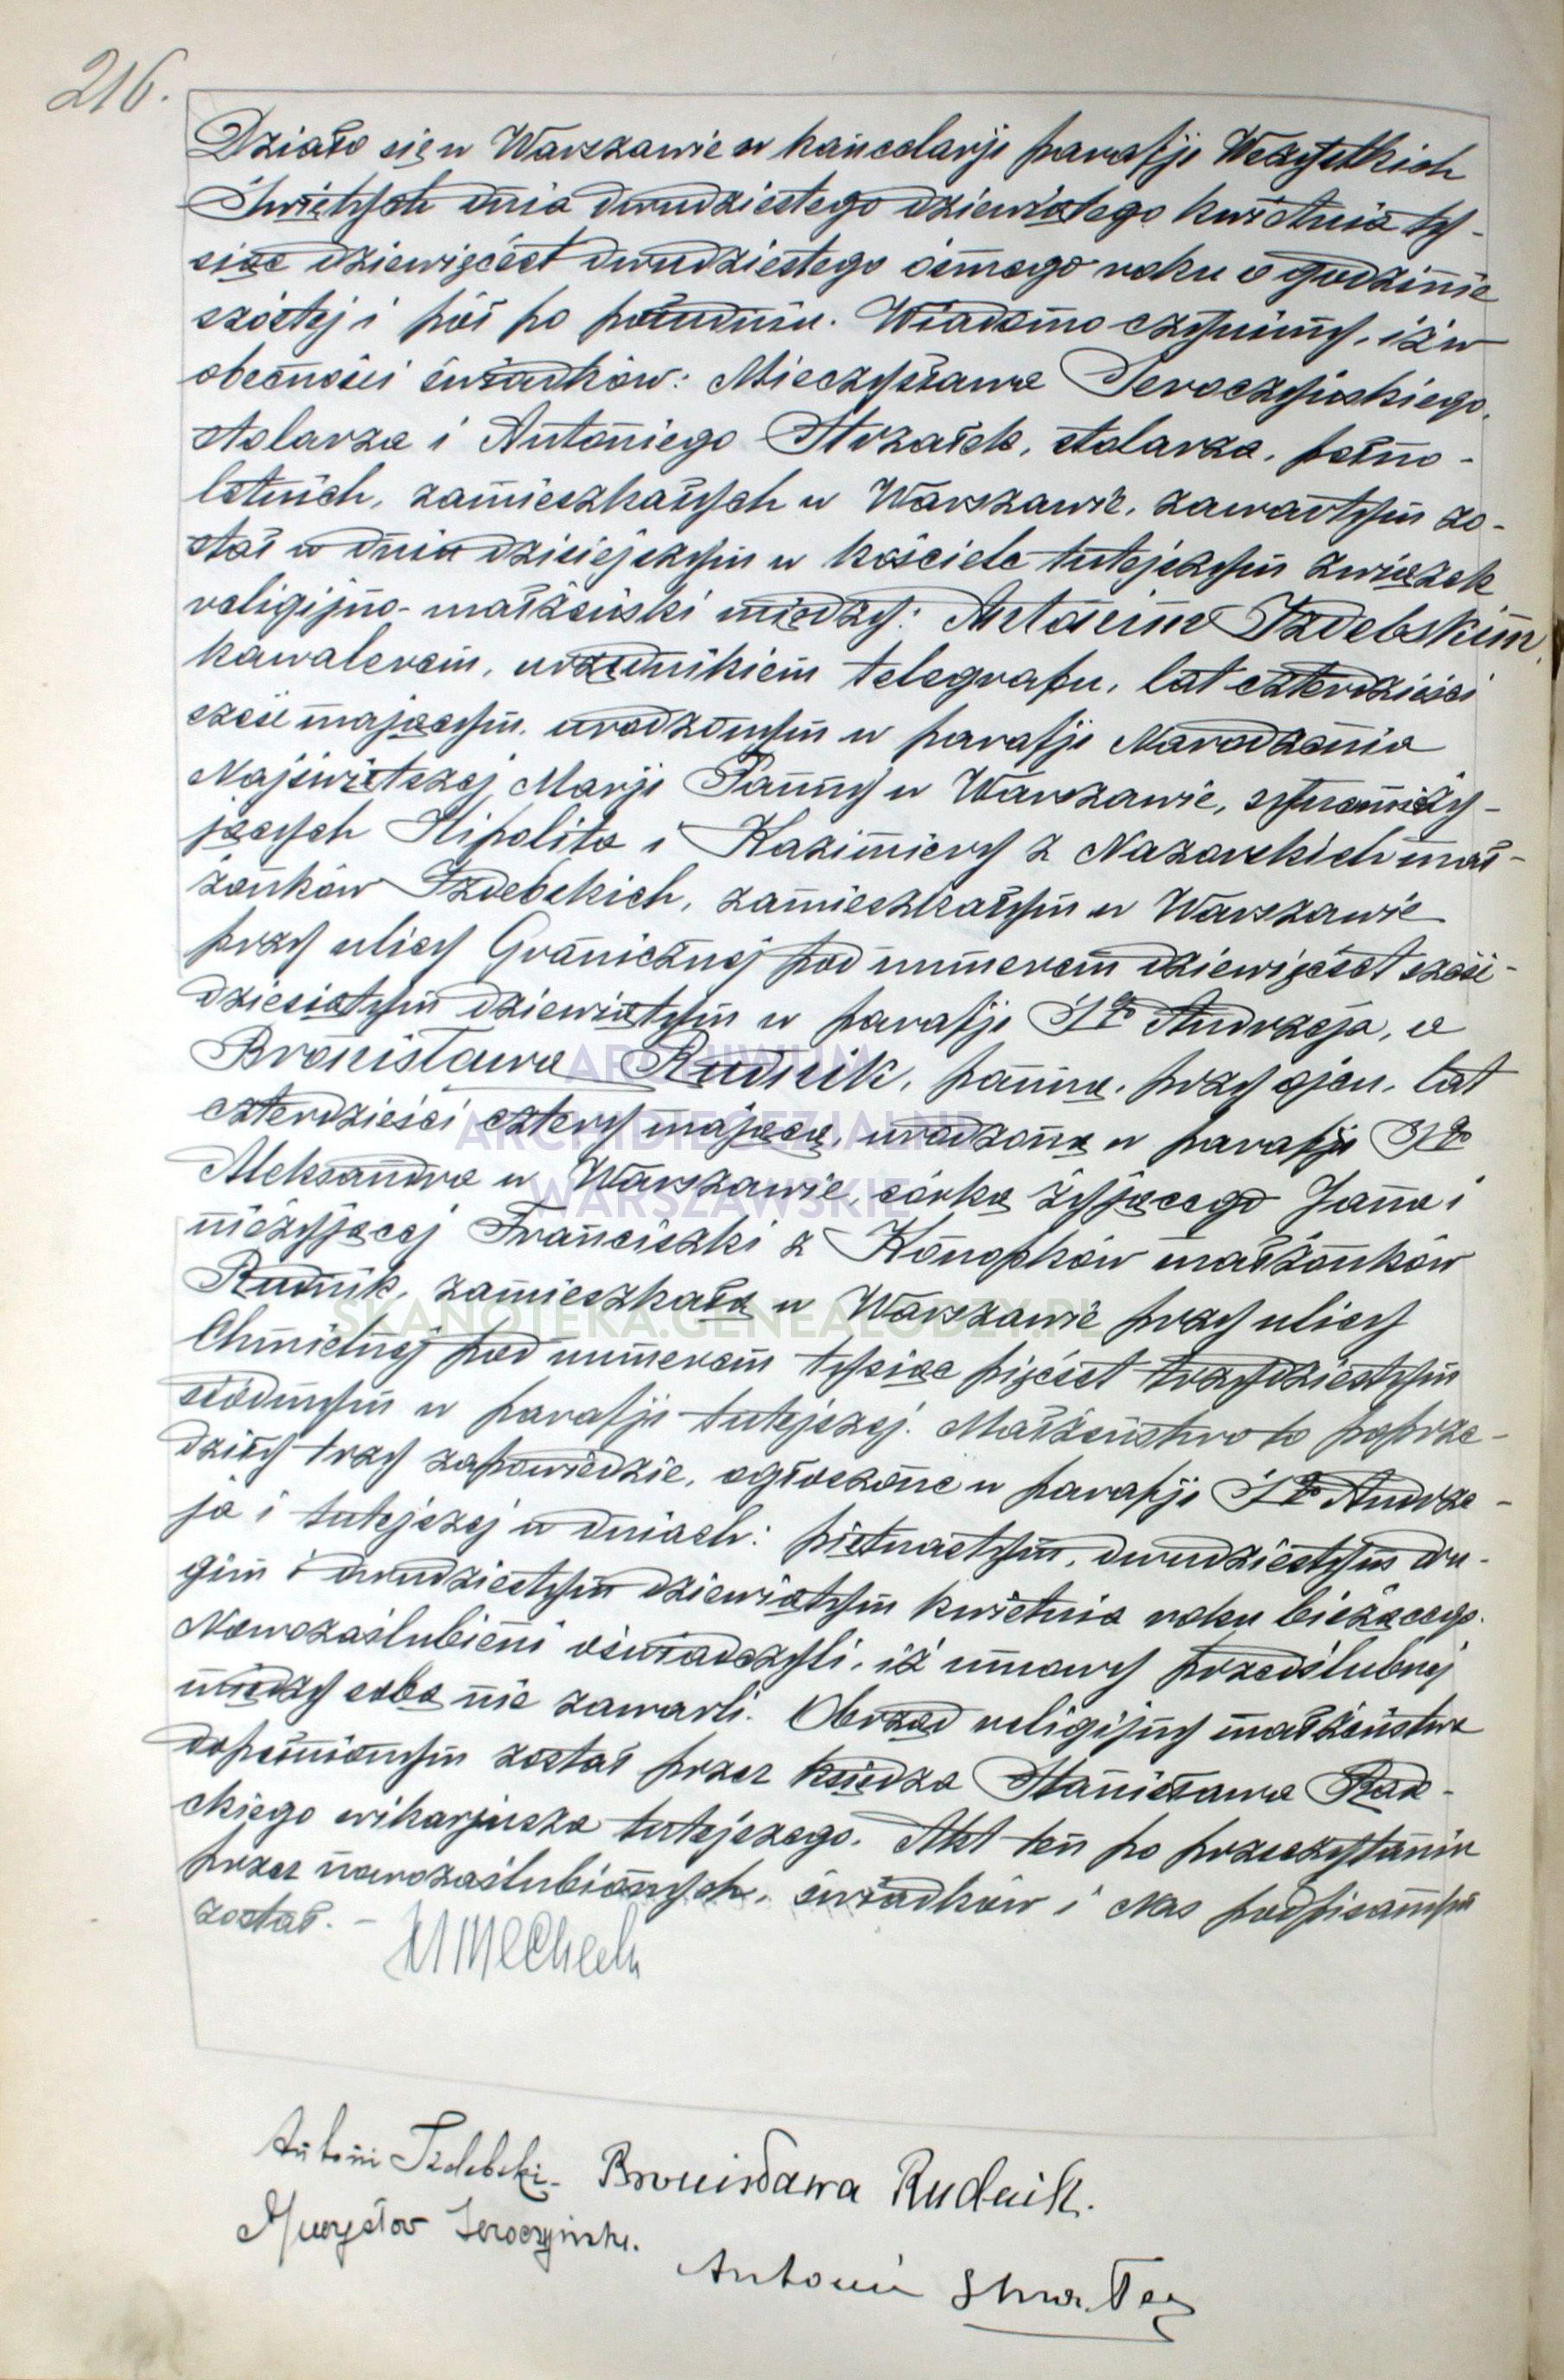 216.
Działo się w Warszawie w kancelarji parafji Wszystkich
Świętych dnia dwudziestego dziewiątego kwietnia ty-
siąc dziewięćset dwudziestego ósmego roku o godzinie
szóstej i pół po południu. Wiadomo czynimy, iż w
obecności świadków: Mieczysława Seroczyńskiego,
stolarza i Antoniego Strzałek, stolarza, pełno-
letnich, zamieszkałych w Warszawie, zawartym zo-
stał w dniu dzisiejszym w kościele tutejszym związek
religijno-małżeński między: Antonim Izdebskim,
kawalerem, urzędnikiem telegrafu, lat czterdzieści
sześć mającym, urodzonym w parafji Narodzenia
Najświętszej Marji Panny w Warszawie, synem nieży-
jących Hipolita i Kazimiery z Nazarskich mał-
żonków Izdebskich, zamieszkałym w Warszawie
przy ulicy Granicznej pod numerem dziewięćset sześć-
dziesiątym dziewiątym w parafji Ś-go Andrzeja, a
Bronisławą Rudnik, panną, przy ojcu, lat
czterdzieści cztery mającą, urodzoną w parafji Ś-go
Aleksandra w Warszawie, córką żyjącego Jana i
nieżyjącej Franciszki z Konopków małżonków
Rudnik, zamieszkałą w Warszawie przy ulicy
Chmielnej pod numerem tysiąc pięćset trzydziestym
siódmym w parafji tutejszej. Małżeństwo to poprze-
dziły trzy zapowiedzie, ogłoszone w parafji Ś-go Andrze-
ja i tutejszej w dniach: piętnastym, dwudziestym dru-
gim i dwudziestym dziewiątym kwietnia roku bieżącego.
Nowozaślubieni oświadczyli, iż umowy przedślubnej
między sobą nie zawarli. Obrząd religijny małżeństwa
dopełnionym został przez księdza Stanisława Rad-
skiego wikarjusza tutejszego. Akt ten po przeczytaniu
przez nowozaślubionych, świadków i Nas podpisanym
został. –
Antoni Izdebski. Bronisława Rudnik.
Mieczysław Seroczyński.
Antoni Strzałek
ARCHIWUM
ARCHIDIECEZJALNE
WARSZAWSKIE
SKANOTEKA.GENEALODZY.PL